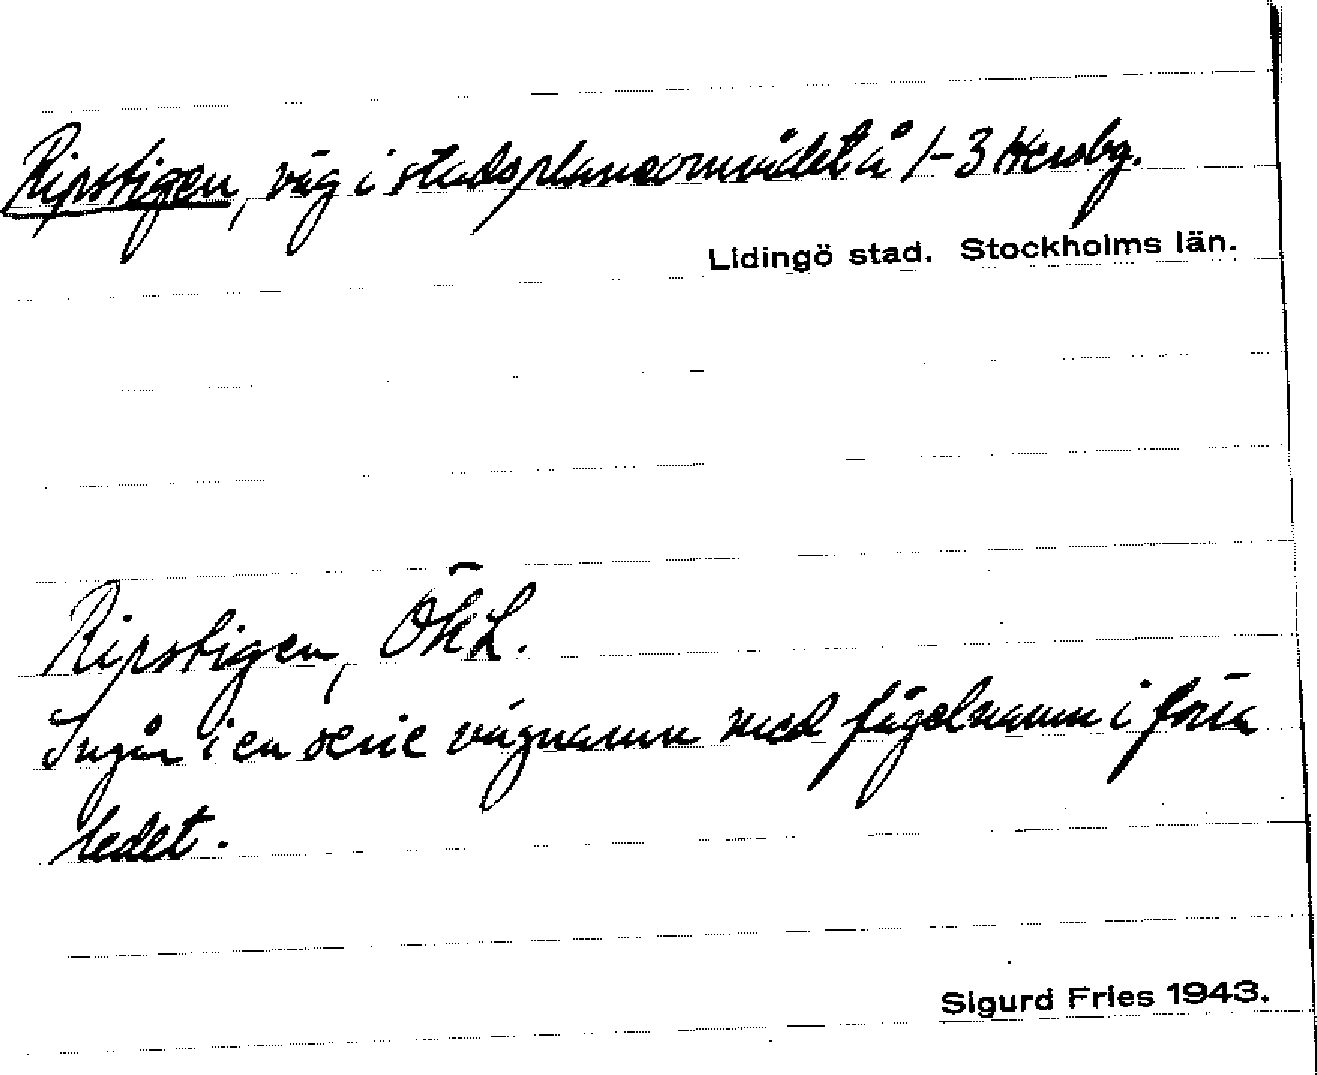 Ripstigen, väg i stadsplaneområdet å 1-3 Hersby.
Lidingö stad. Stockholms län.
Ripstigen, ÖKL.
Ingår i en serie vägnamn med fågelnamn i förra
ledet.
Sigurd Fries 1943.